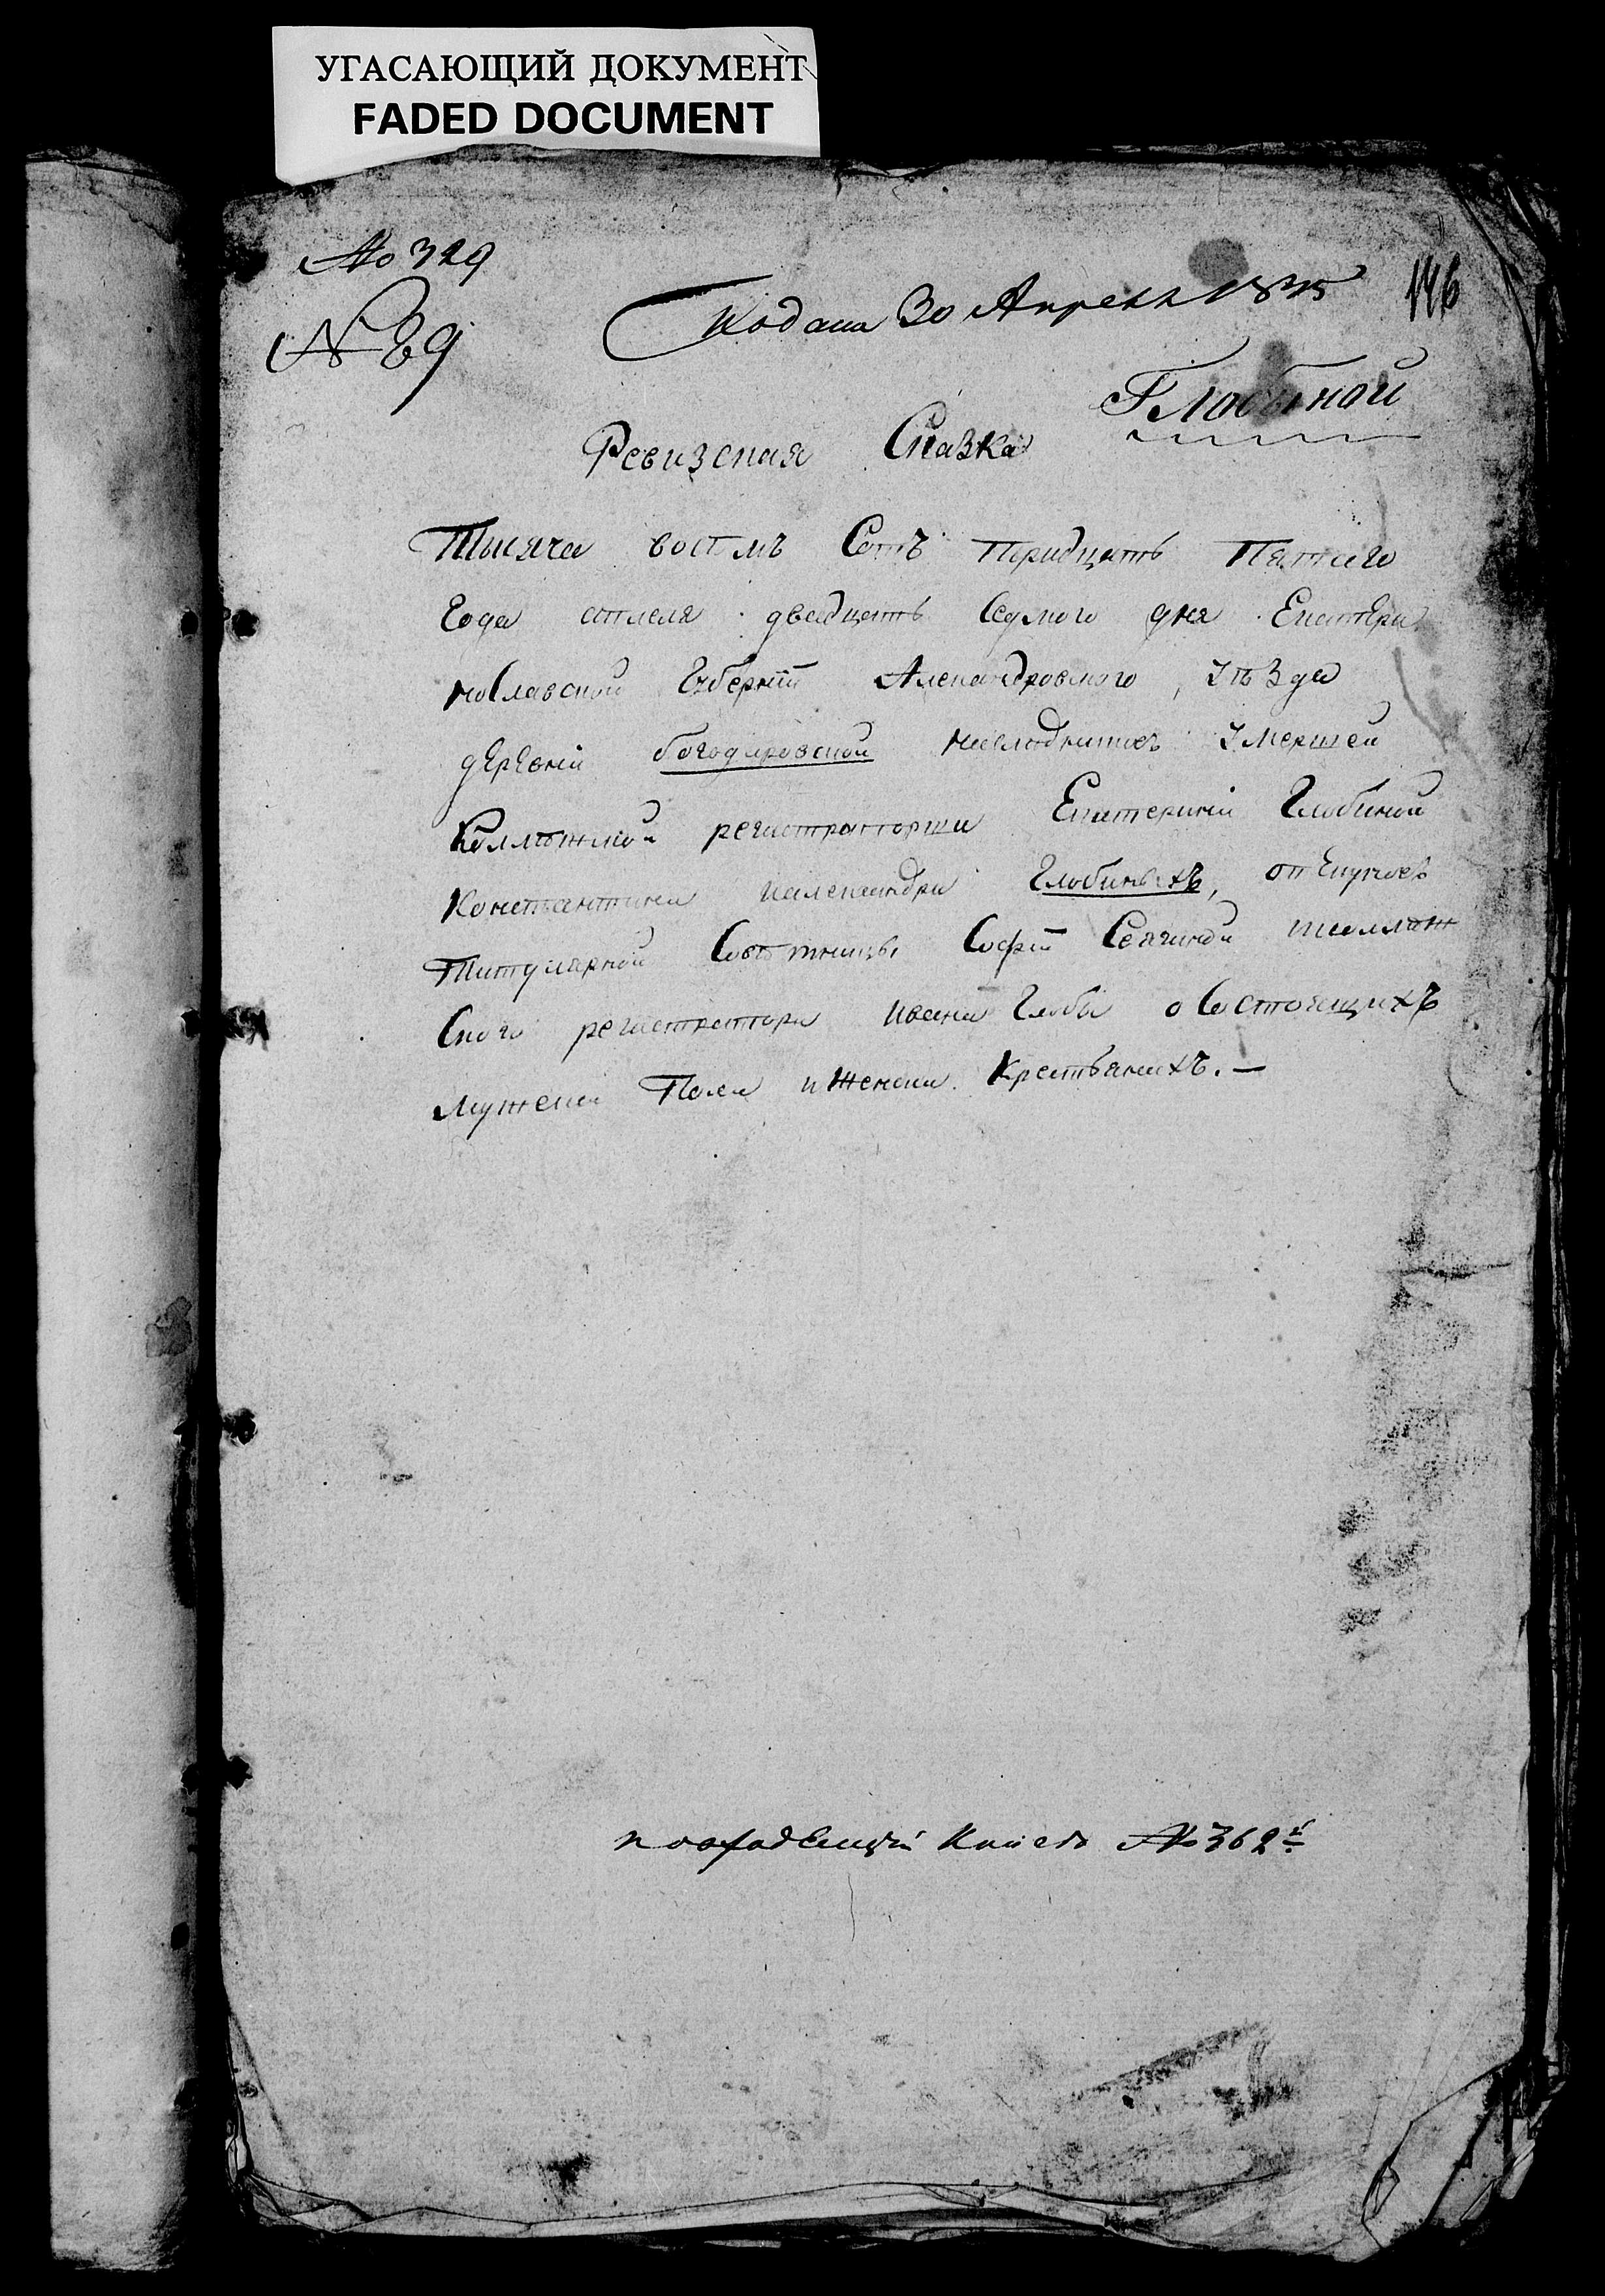 УГАСАЮЩИЙ ДОКУМЕНТ
FADED DOCUMENT
№ 329
146
Подана 30 Апреля 1835
N 89
Глобиной
Ревизская Сказка
Тысяча восемъ Сотъ тридцать Пятаго
года апреля двадцать Седмого дня Екатери
нославской Губерніи Александровского уѣзда
деревни богодаровской наследниковъ умершей
Коллежской регистраторши Екатерини Глобиной
Константина иалександра Глобиныхъ, опекуновъ
Титулярной Совѣтницы Софіи иколлеж
Ского регистратора ивана Глобы оСостоящихъ
мужеска Пола иженска Крестьянахъ. —
по входящей книге № 362й